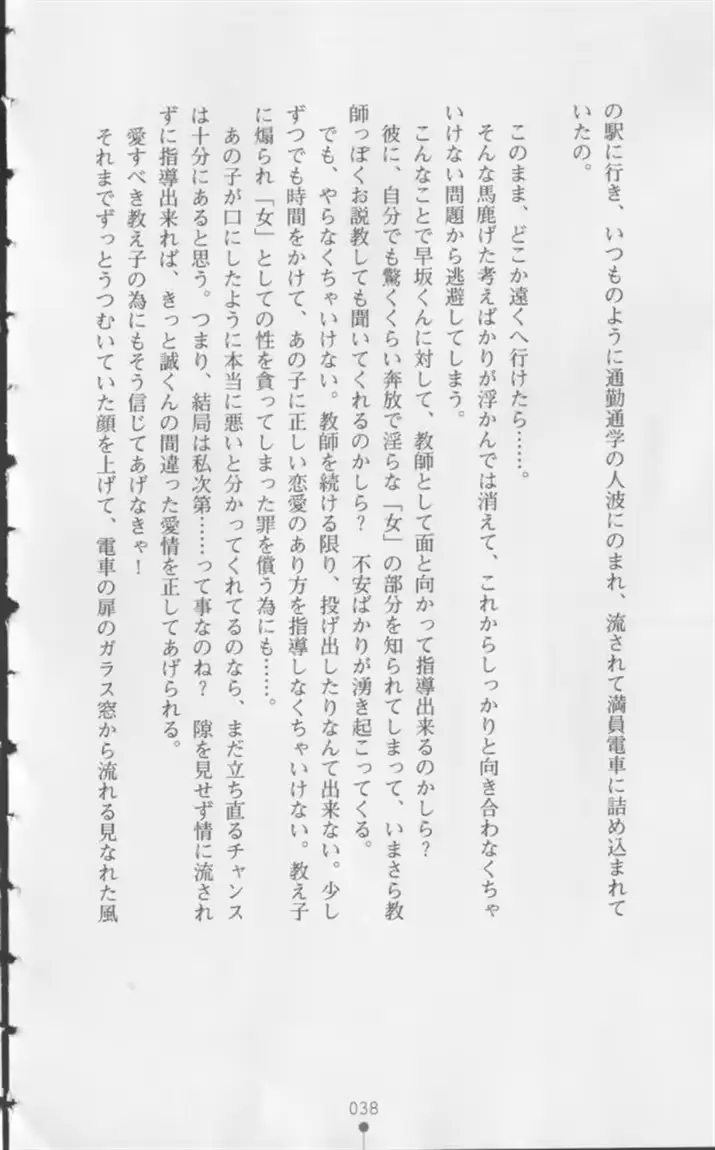 の駅に行き、いつものように通勤通学の人波にのまれ、流されて満員電車に詰め込まれて
いたの。
このまま、どこか遠くへ行けたら……。
そんな馬鹿げた考えばかりが浮かんでは消えて、これからしっかりと向き合わなくちゃ
いけない問題から逃避してしまう。
こんなことで早坂くんに対して、教師として面と向かって指導出来るのかしら?
彼に、自分でも驚くくらい奔放で淫らな「女」の部分を知られてしまって、いまさら教
師っぽくお説教しても聞いてくれるのかしら? 不安ばかりが湧き起こってくる。
でも、やらなくちゃいけない。教師を続ける限り、投げ出したりなんて出来ない。少し
ずつでも時間をかけて、あの子に正しい恋愛のあり方を指導しなくちゃいけない。教え子
に煽られ「女」としての性を貪ってしまった罪を償う為にも……。
あの子が口にしたように本当に悪いと分かってくれてるのなら、まだ立ち直るチャンス
は十分にあると思う。つまり、結局は私次第……って事なのね? 隙を見せず情に流され
ずに指導出来れば、きっと誠くんの間違った愛情を正してあげられる。
愛すべき教え子の為にもそう信じてあげなきゃ!
それまでずっとうつむいていた顔を上げて、電車の扉のガラス窓から流れる見なれた風
038